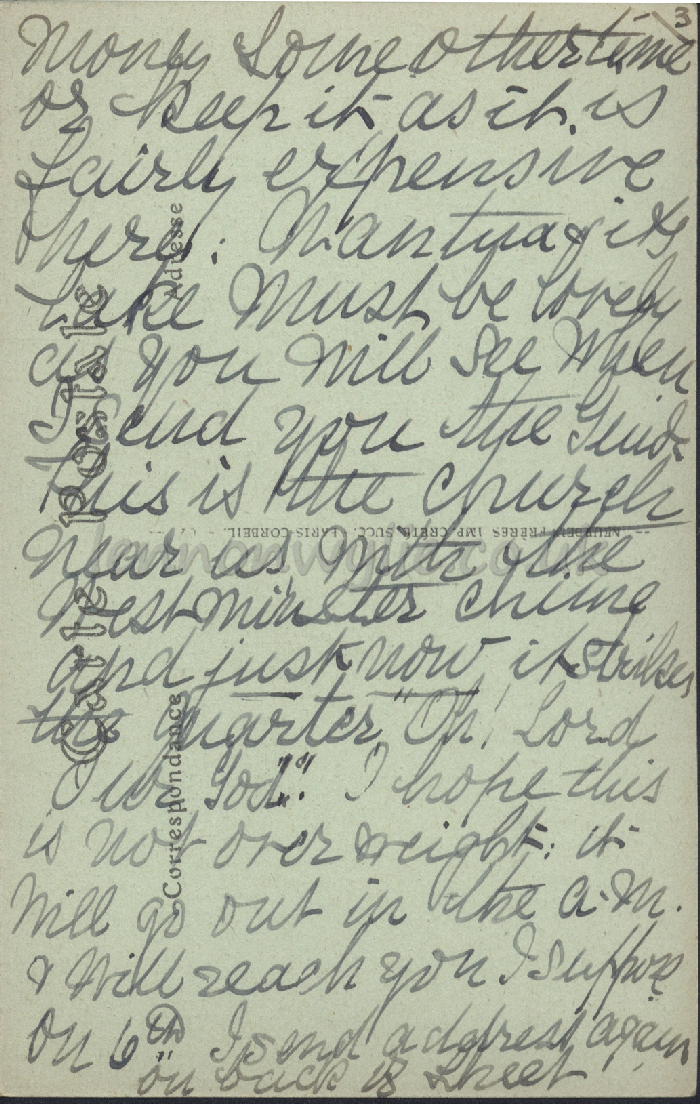 3
money some other time
or keep it as it is
fairly expensive
here. Mantua & its
Lake must be lovely
as you will see when
I send you the Guide
this is the church
near us with the
Westminster chime
and just now it strikes
the quarter "Oh! Lord
Our God". I hope this
is not over weight. it
will go out in the a.m.
& will reach you I suppose
on 6th I send address again
on back of sheet
Carte Postale
Correspondance
Adresse
NEURDEIN FRÈRES IMP. CRÉTÉ, SUCC. PARIS-CORBEIL.